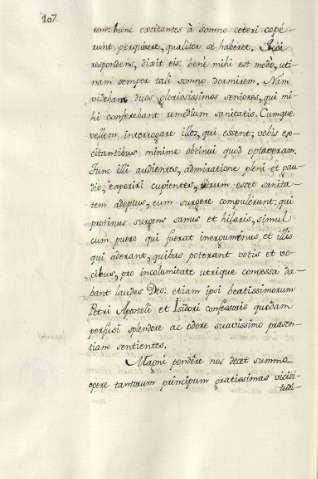 107
tem. hunc excitantes à somno ceteri cepe-
runt perquirere, qualiter se haberet. Ipse
respondens, dixit eis: bene mihi est modo, uti-
nam semper tali somno dormirem. Nam
videbam duos gloriosissimos seniores, qui mi-
hi conferebant remedium sanitatis. Cumque
vellem interrogare illos, qui essent; vobis ex-
citantibus minime obtinui quod optaveram.
Tunc illi audientes, admiratione pleni et gau-
dio, experiri cupientes, utrum esset sanita-
tem adeptus, eum surgere compulerunt: qui
protinus surgens sanus et hilaris, simul
cum puero qui fuerat inerguminus et illis
qui aderant, quibus poterant votis et vo-
cibus, pro incolumitate utrique concessa da-
bant laudes Deo: etiam ipsi beatissimorum
Petri Apostoli et Isidori confessoris quidam
perfusi splendore ac odore suavissimo presen-
tiam sentientes.
Magni pendere nos decet summo
opere tantorum principum gratissimas vicisi-
tudi-